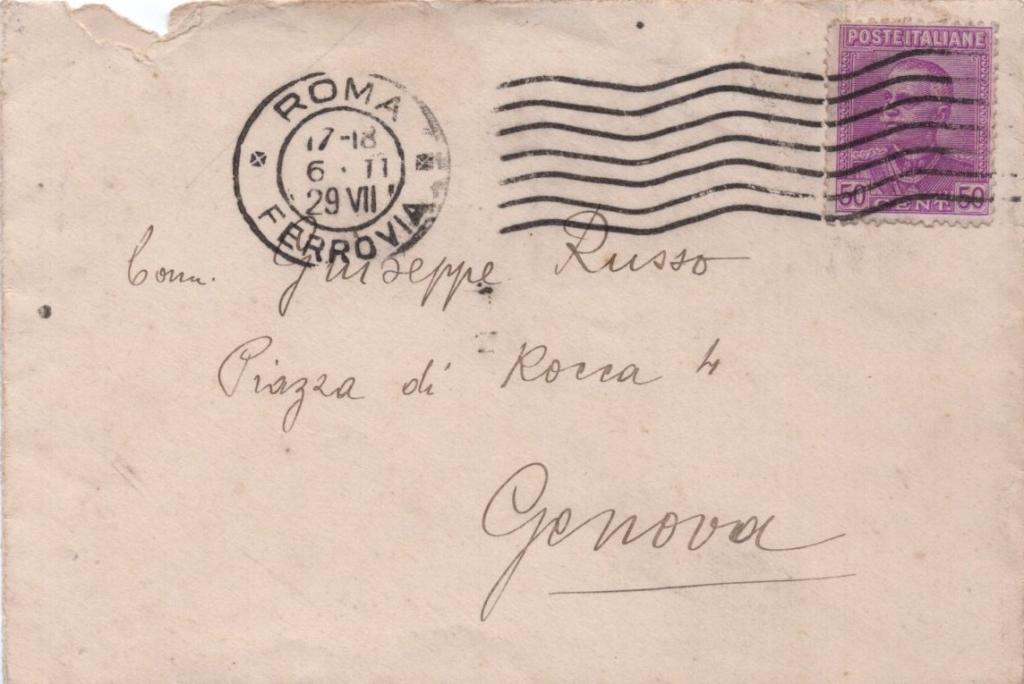 POSTE ITALIANE
50 CENT. 50
ROMA
17-18
6 · II
29 VII
FERROVIA
Comm. Giuseppe Russo
Piazza di Rocca 4
Genova